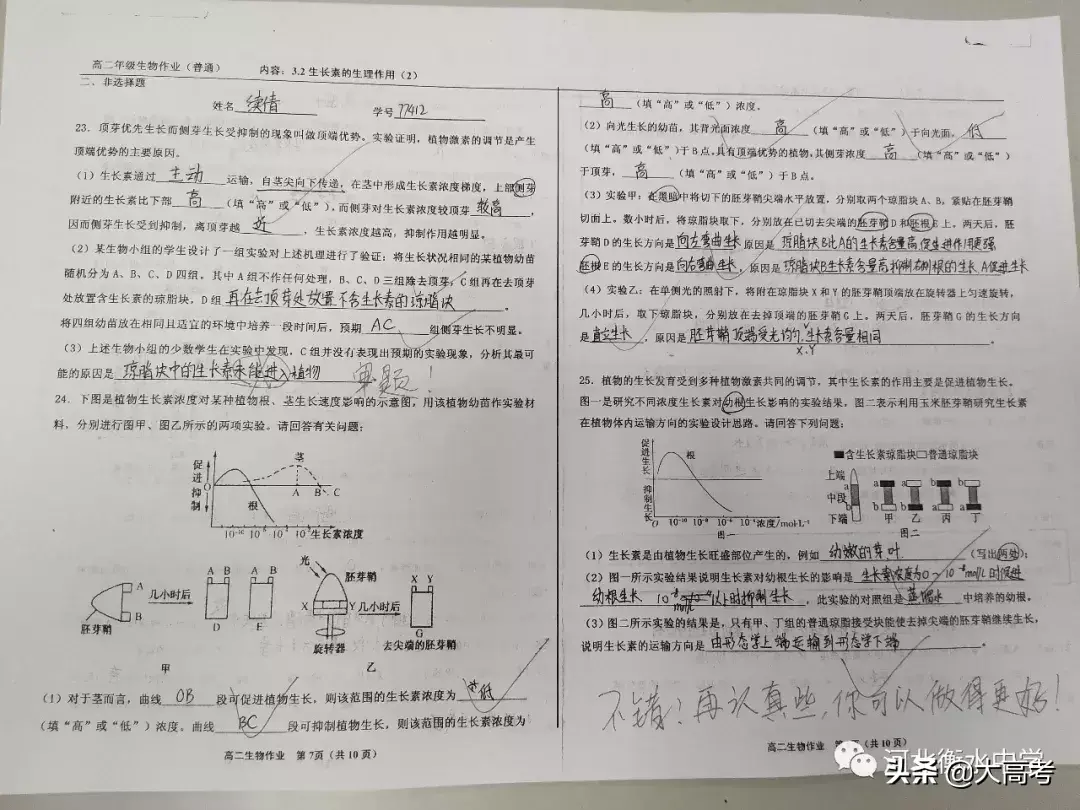 高二年级生物作业（普通） 内容：3.2 生长素的生理作用（2）
二、非选择题
姓名 续倩 学号 77412
23．顶芽优先生长而侧芽生长受抑制的现象叫做顶端优势。实验证明，植物激素的调节是产生
顶端优势的主要原因。
（1）生长素通过 主动 运输，自茎尖向下传递，在茎中形成生长素浓度梯度，上部侧芽
附近的生长素比下部 高 （填“高”或“低”），而侧芽对生长素浓度较顶芽 较高 ，
因而侧芽生长受到抑制，离顶芽越 近 ，生长素浓度越高，抑制作用越明显。
（2）某生物小组的学生设计了一组实验对上述机理进行了验证：将生长状况相同的某植物幼苗
随机分为 A、B、C、D 四组。其中 A 组不作任何处理，B、C、D 三组除去顶芽，C 组再在去顶芽
处放置含生长素的琼脂块，D 组 再在去顶芽处放置不含生长素的琼脂块
将四组幼苗放在相同且适宜的环境中培养一段时间后，预期 AC 组侧芽生长不明显。
（3）上述生物小组的少数学生在实验中发现，C 组并没有表现出预期的实验现象，分析其最可
能的原因是 琼脂块中的生长素未能进入植物
24．下图是植物生长素浓度对某种植物根、茎生长速度影响的示意图，用该植物幼苗作实验材
料，分别进行图甲、图乙所示的两项实验。请回答有关问题：
促进
抑制
O
茎
A B C
根
生长素浓度
A
B
胚芽鞘
几小时后
A B A B
D E
甲
光
胚芽鞘
X Y
旋转器
几小时后
X Y
G
去尖端的胚芽鞘
乙
（1）对于茎而言，曲线 OB 段可促进植物生长，则该范围的生长素浓度为 低
（填“高”或“低”）浓度。曲线 BC 段可抑制植物生长，则该范围的生长素浓度为
高二生物作业 第 7页（共 10 页）
高 （填“高”或“低”）浓度。
（2）向光生长的幼苗，其背光面浓度 高 （填“高”或“低”）于向光面， 低
（填“高”或“低”）于 B 点，具有顶端优势的植物，其侧芽浓度 高 （填“高”或“低”）
于顶芽， 高 （填“高”或“低”）于 B 点。
（3）实验甲：在黑暗中将切下的胚芽鞘尖端水平放置，分别取两个琼脂块 A、B，紧贴在胚芽鞘
切面上。数小时后，将琼脂块取下，分别放在已切去尖端的胚芽鞘 D 和胚根 E 上。两天后，胚
芽鞘 D 的生长方向是 向左弯曲生长 原因是 琼脂块B比A的生长素含量高促生进作用更强
胚根 E 的生长方向是 向右弯曲生长 ，原因是 琼脂块B生长素含量高抑制右侧根的生长 A促进生长
（4）实验乙：在单侧光的照射下，将附在琼脂块 X 和 Y 的胚芽鞘顶端放在旋转器上匀速旋转，
几小时后，取下琼脂块，分别放在去掉顶端的胚芽鞘 G 上。两天后，胚芽鞘 G 的生长方向
是 直立生长 ，原因是 胚芽鞘顶端受光均匀，生长素含量相同 。
X、Y
25．植物的生长发育受到多种植物激素共同的调节，其中生长素的作用主要是促进植物生长。
图一是研究不同浓度生长素对幼根生长影响的实验结果，图二表示利用玉米胚芽鞘研究生长素
在植物体内运输方向的实验设计思路。请回答下列问题：
促进生长
抑制生长
根
O 10⁻¹⁰ 10⁻⁸ 10⁻⁶ 10⁻⁴ 浓度/mol·L⁻¹
图一
■含生长素琼脂块□普通琼脂块
上端
中段
下端
a
b
a a b b
b b a a
甲 乙 丙 丁
图二
（1）生长素是由植物生长旺盛部位产生的，例如 幼嫩的芽叶 （写出两处）；
（2）图一所示实验结果说明生长素对幼根生长的影响是 生长素浓度为0～10⁻⁸mol/L时促进
幼根生长 10⁻⁸mol/L以上时抑制生长 ，此实验的对照组是 蒸馏水 中培养的幼根。
（3）图二所示实验的结果是，只有甲、丁组的普通琼脂接受块能使去掉尖端的胚芽鞘继续生长，
说明生长素的运输方向是 由形态学上端运输到形态学下端 。
不错！再认真些，你可以做得更好！
高二生物作业 （共 10 页）
河北衡水中学
头条 @大高考